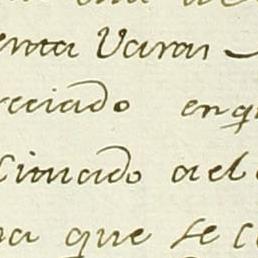 enta Varas
reciado en q
cionado a el
pa que se c